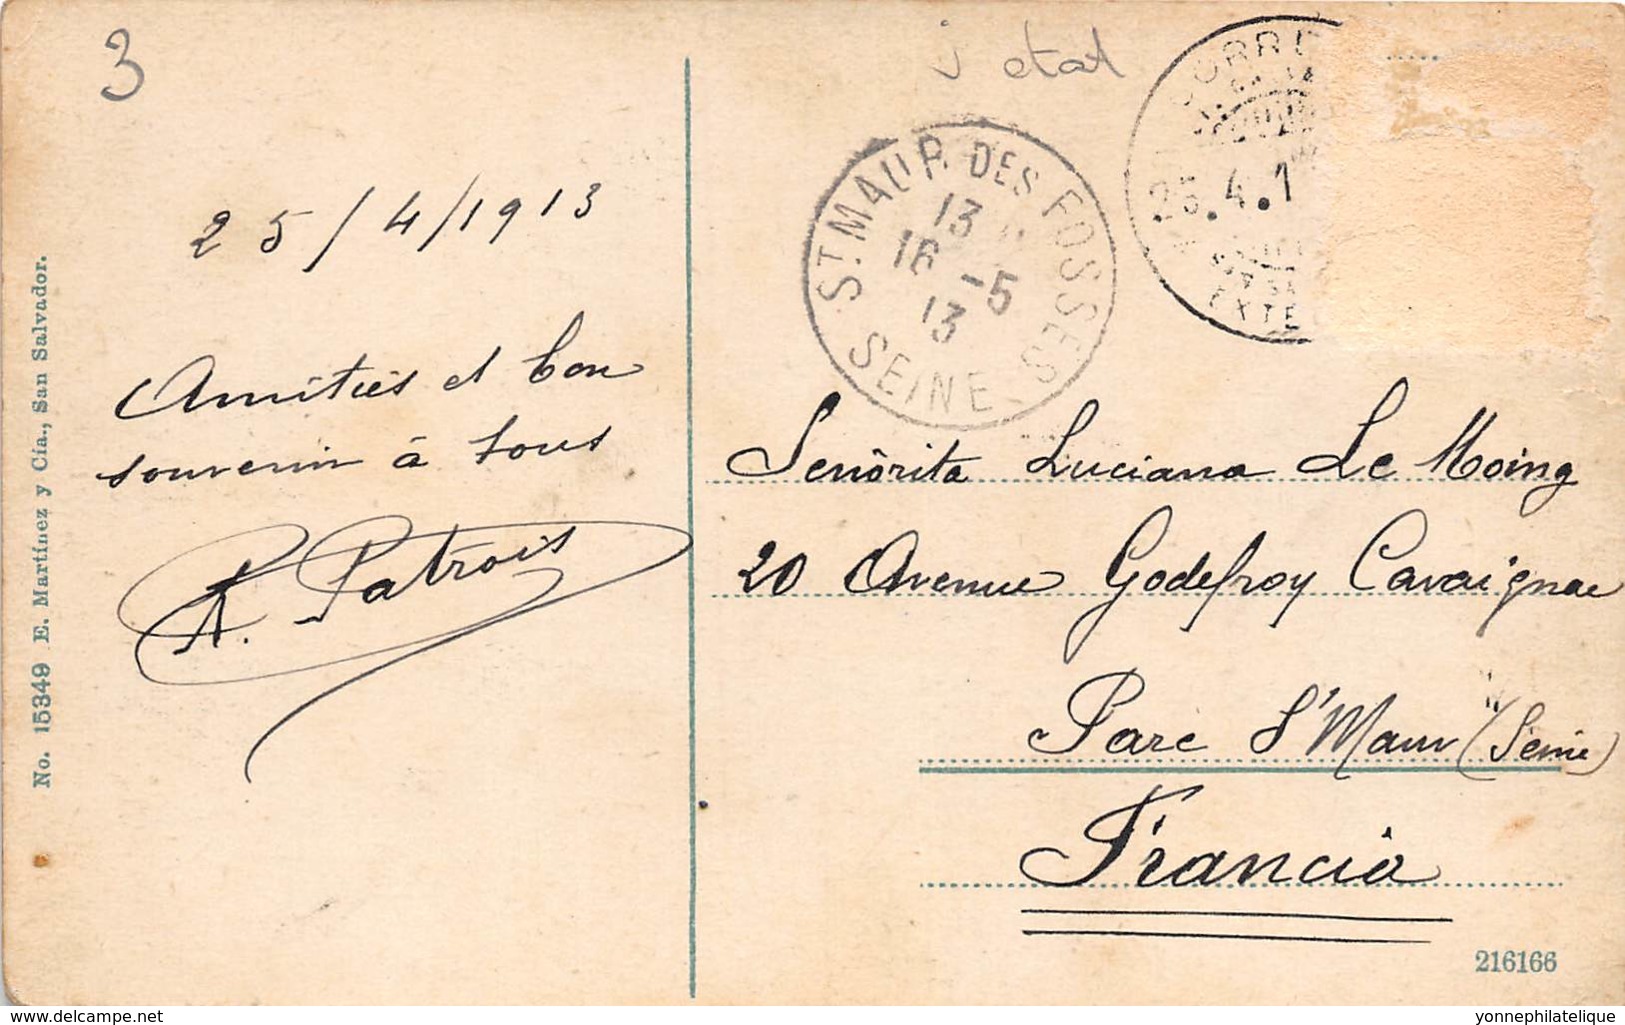 3
j etat
25/4/1913
Amitiés et bon
souvenir à tous
A. Patrois
No. 15349 E. Martínez y Cía., San Salvador.
ST. MAUR DES FOSSÉS
13
16 -5
13
SEINE
CORRE
25.4.1
EXTE
Señorita Luciana Le Moing
20 Avenue Godefroy Cavaignac
Parc St Maur (Seine)
Francia
216166
www.delcampe.net
yonnephilatelique